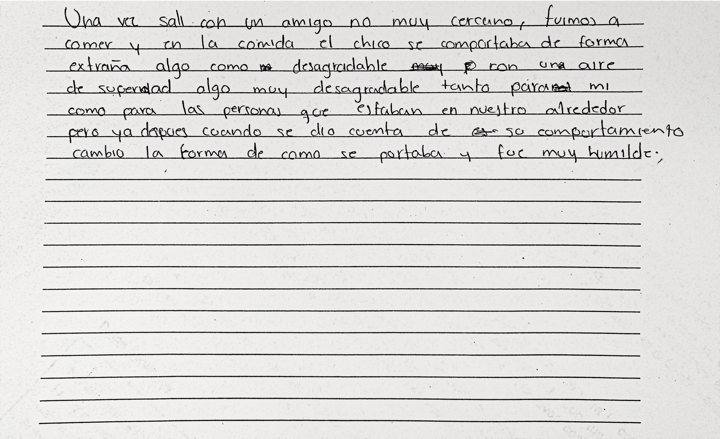 Una vez salí con un amigo no muy cercano, fuimos a
comer y en la comida el chico se comportaba de forma
extraña algo como desagradable con una aire
de superidad algo muy desagradable tanto para mi
como para las personas que estaban en nuestro alrededor
pero ya despues cuando se dio cuenta de su comportamiento
cambio la forma de como se portaba y fue muy humilde.